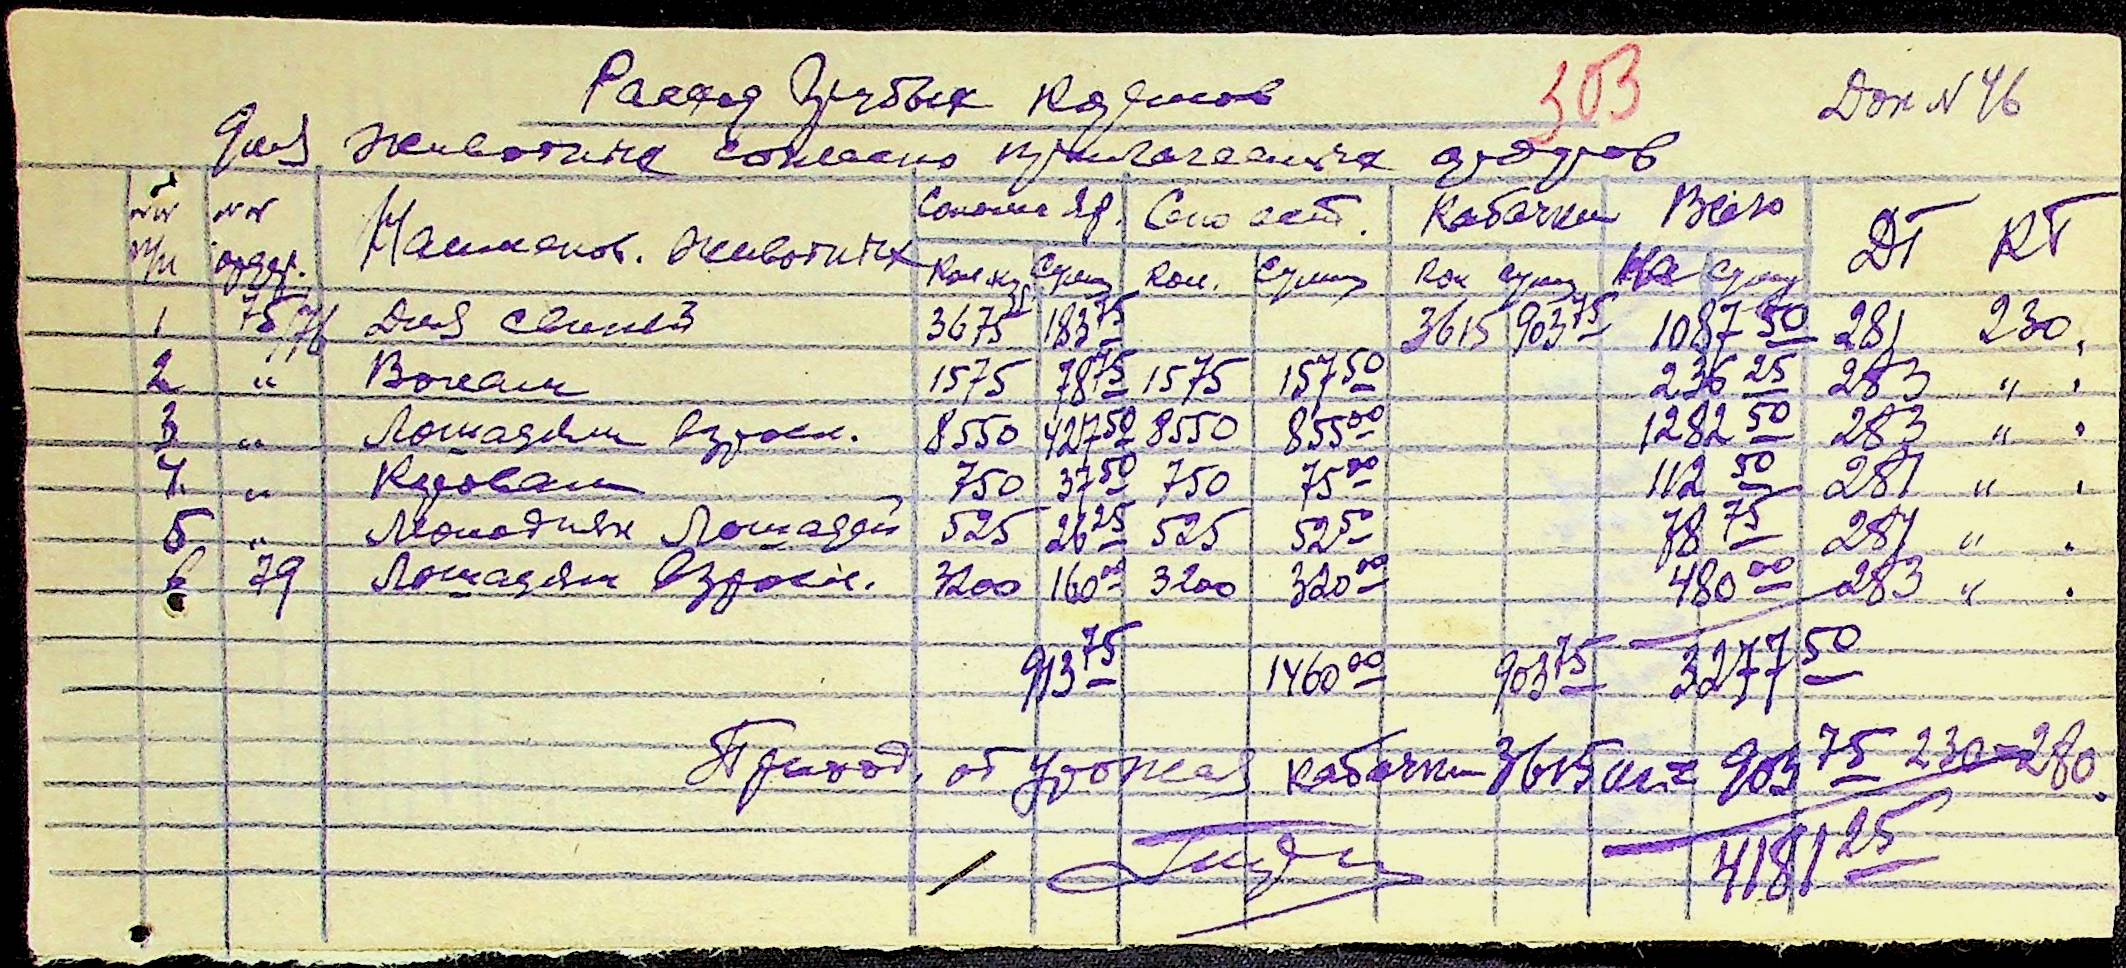 Расход Грубых кормов 303 Док N 46
для животных согласно прилагаемых ордеров
NN п/п NN ордер. Наименов. животных Солома яр. Сено ест. Кабачки Всего ДТ КТ
Кол. кг Сумму Кол. Сумму Кол Сумму На Сумму
1 75/76 Для свиней 3675 183 75 3615 903 75 1087 50 281 230.
2 " Волам 1575 78 75 1575 157 50 236 25 283 " .
3 " Лошадям взросл. 8550 427 50 8550 855 00 1282 50 283 " .
4. " Коровам 750 37 50 750 75 00 112 50 281 " .
5 " Молодняк Лошадей 525 26 25 525 52 50 78 75 281 " .
6 79 Лошадям взросл. 3200 160 00 3200 320 00 480 00 283 " .
913 75 1460 00 903 75 3277 50
Приход. от урожая кабачки 3615 = 903 75 230-280.
4181 25